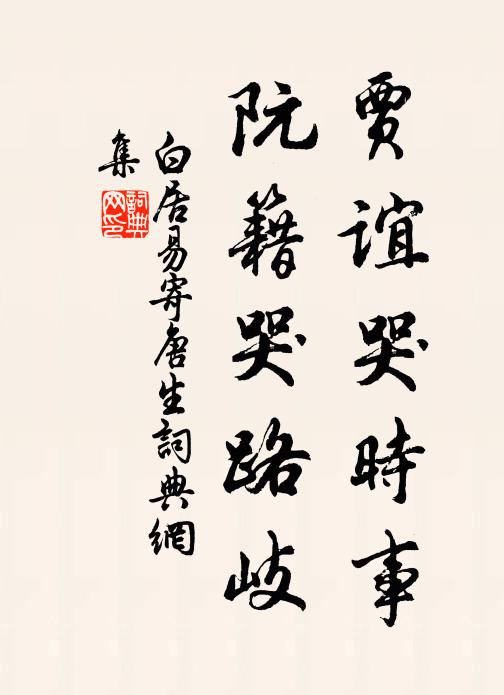 賈誼哭時事
阮籍哭路岐
白居易寄唐生詞典網
集
詞典
网印